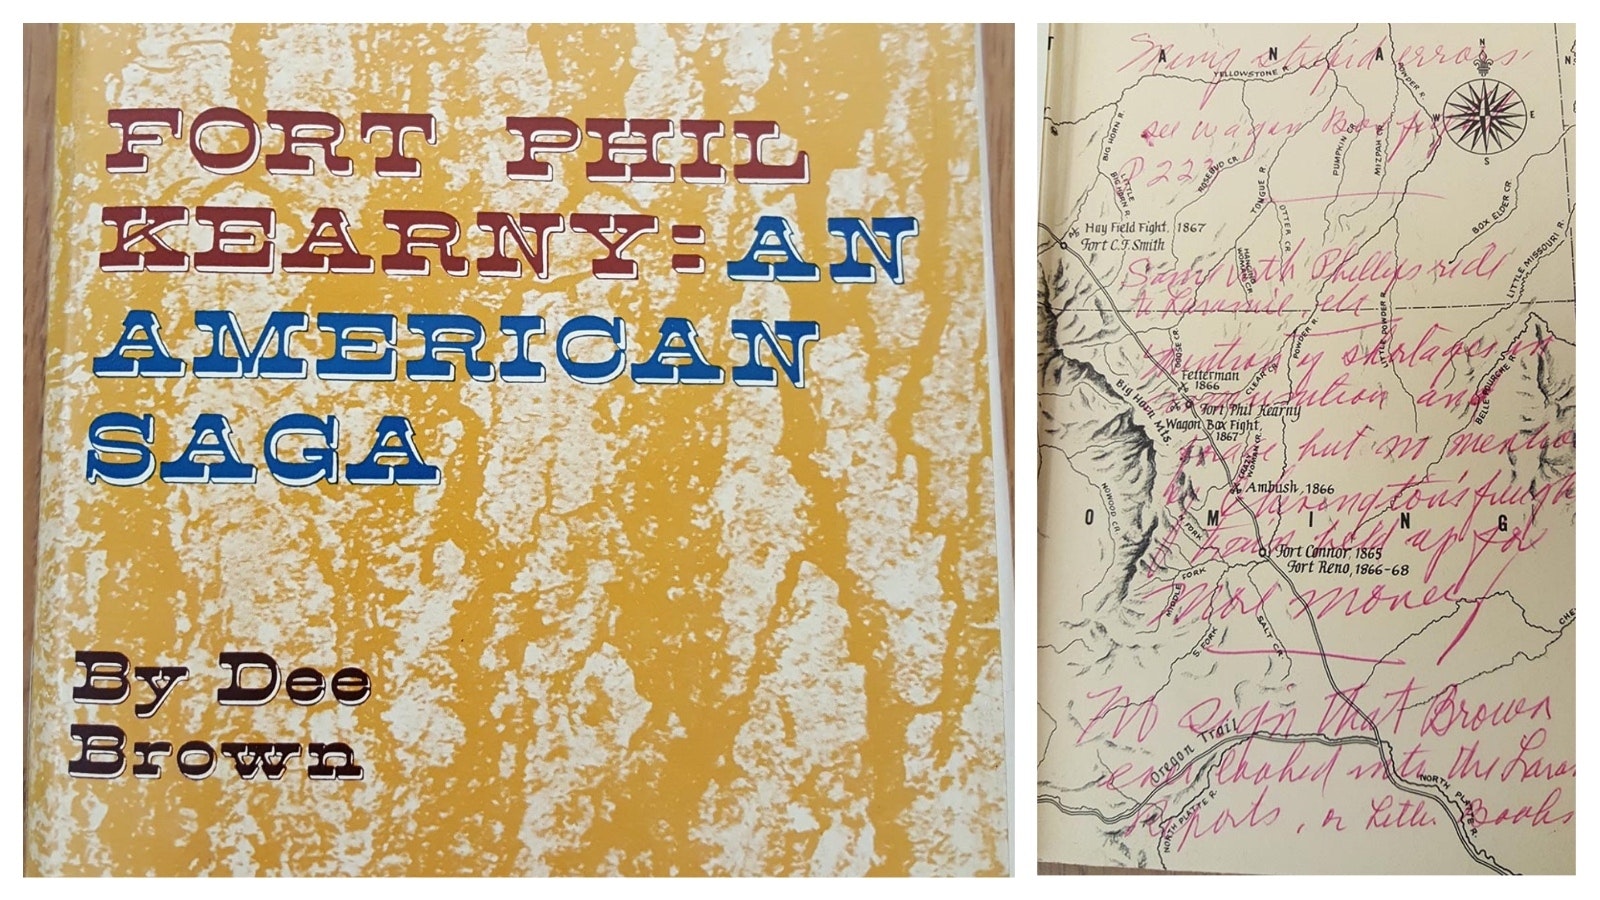 FORT PHIL
KEARNY: AN
AMERICAN
SAGA
By Dee
Brown
T A N A
N
W
E
S
YELLOWSTONE R.
POWDER R.
BIG HORN R.
LITTLE
BIG HORN R.
ROSEBUD CR.
TONGUE R.
OTTER CR.
PUMPKIN CR.
MIZPAH CR.
BOX ELDER CR.
LITTLE MISSOURI R.
Hay Field Fight, 1867
Fort C.F. Smith
HANGING WOMAN CR.
GOOSE CR.
POWDER R.
LITTLE POWDER R.
BELLE FOURCHE R.
Big Horn Mts.
Fetterman
1866
CLEAR CR.
Fort Phil Kearny
Wagon Box Fight,
1867
CRAZY
WOMAN CR.
Ambush, 1866
NOWOOD CR.
O M I N G
N. FORK
Fort Connor, 1865
Fort Reno, 1866-68
MIDDLE FORK
S. FORK
SALT CR.
CHE
Oregon Trail
NORTH PLATTE R.
NORTH PLATTE R.
Many stupid errors.
see wagon Box fight
P 222
Same with Phillips ride
to Laramie, etc
Mention of shortages in
ammunition and
but no mention
Carrington's
trains held up for
more money
No sign that Brown
ever looked into the Lara
Reports, or Letter Books